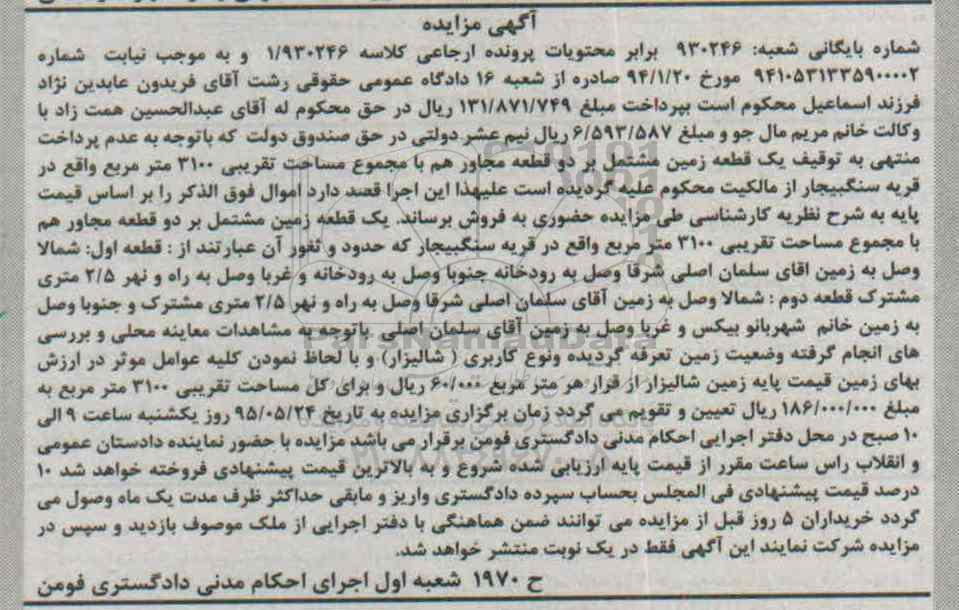 آگهی مزایده
شماره بایگانی شعبه: ۹۳۰۲۴۶ برابر محتویات پرونده ارجاعی کلاسه ۱/۹۳۰۲۴۶ و به موجب نیابت شماره
۹۴۱۰۵۳۱۳۳۵۹۰۰۰۰۲ مورخ ۹۴/۱/۲۰ صادره از شعبه ۱۶ دادگاه عمومی حقوقی رشت آقای فریدون عابدین نژاد
فرزند اسماعیل محکوم است بپرداخت مبلغ ۱۳۱/۸۷۱/۷۴۹ ریال در حق محکوم له آقای عبدالحسین همت زاد با
وکالت خانم مریم مال جو و مبلغ ۶/۵۹۳/۵۸۷ ریال نیم عشر دولتی در حق صندوق دولت که باتوجه به عدم پرداخت
منتهی به توقیف یک قطعه زمین مشتمل بر دو قطعه مجاور هم با مجموع مساحت تقریبی ۳۱۰۰ متر مربع واقع در
قریه سنگبیجار از مالکیت محکوم علیه گردیده است علیهذا این اجرا قصد دارد اموال فوق الذکر را بر اساس قیمت
پایه به شرح نظریه کارشناسی طی مزایده حضوری به فروش برساند. یک قطعه زمین مشتمل بر دو قطعه مجاور هم
با مجموع مساحت تقریبی ۳۱۰۰ متر مربع واقع در قریه سنگبیجار که حدود و ثغور آن عبارتند از : قطعه اول: شمالا
وصل به زمین اقای سلمان اصلی شرقا وصل به رودخانه جنوبا وصل به رودخانه و غربا وصل به راه و نهر ۲/۵ متری
مشترک قطعه دوم : شمالا وصل به زمین آقای سلمان اصلی شرقا وصل به راه و نهر ۲/۵ متری مشترک و جنوبا وصل
به زمین خانم شهربانو بیکس و غربا وصل به زمین آقای سلمان اصلی باتوجه به مشاهدات معاینه محلی و بررسی
های انجام گرفته وضعیت زمین تعرفه گردیده ونوع کاربری ( شالیزار) و با لحاظ نمودن کلیه عوامل موثر در ارزش
بهای زمین قیمت پایه زمین شالیزار از قرار هر متر مربع ۶۰/۰۰۰ ریال و برای کل مساحت تقریبی ۳۱۰۰ متر مربع به
مبلغ ۱۸۶/۰۰۰/۰۰۰ ریال تعیین و تقویم می گردد زمان برگزاری مزایده به تاریخ ۹۵/۰۵/۲۴ روز یکشنبه ساعت ۹ الی
۱۰ صبح در محل دفتر اجرایی احکام مدنی دادگستری فومن برقرار می باشد مزایده با حضور نماینده دادستان عمومی
و انقلاب راس ساعت مقرر از قیمت پایه ارزیابی شده شروع و به بالاترین قیمت پیشنهادی فروخته خواهد شد ۱۰
درصد قیمت پیشنهادی فی المجلس بحساب سپرده دادگستری واریز و مابقی حداکثر ظرف مدت یک ماه وصول می
گردد خریداران ۵ روز قبل از مزایده می توانند ضمن هماهنگی با دفتر اجرایی از ملک موصوف بازدید و سپس در
مزایده شرکت نمایند این آگهی فقط در یک نوبت منتشر خواهد شد.
ح ۱۹۷۰ شعبه اول اجرای احکام مدنی دادگستری فومن
ParsNamadData